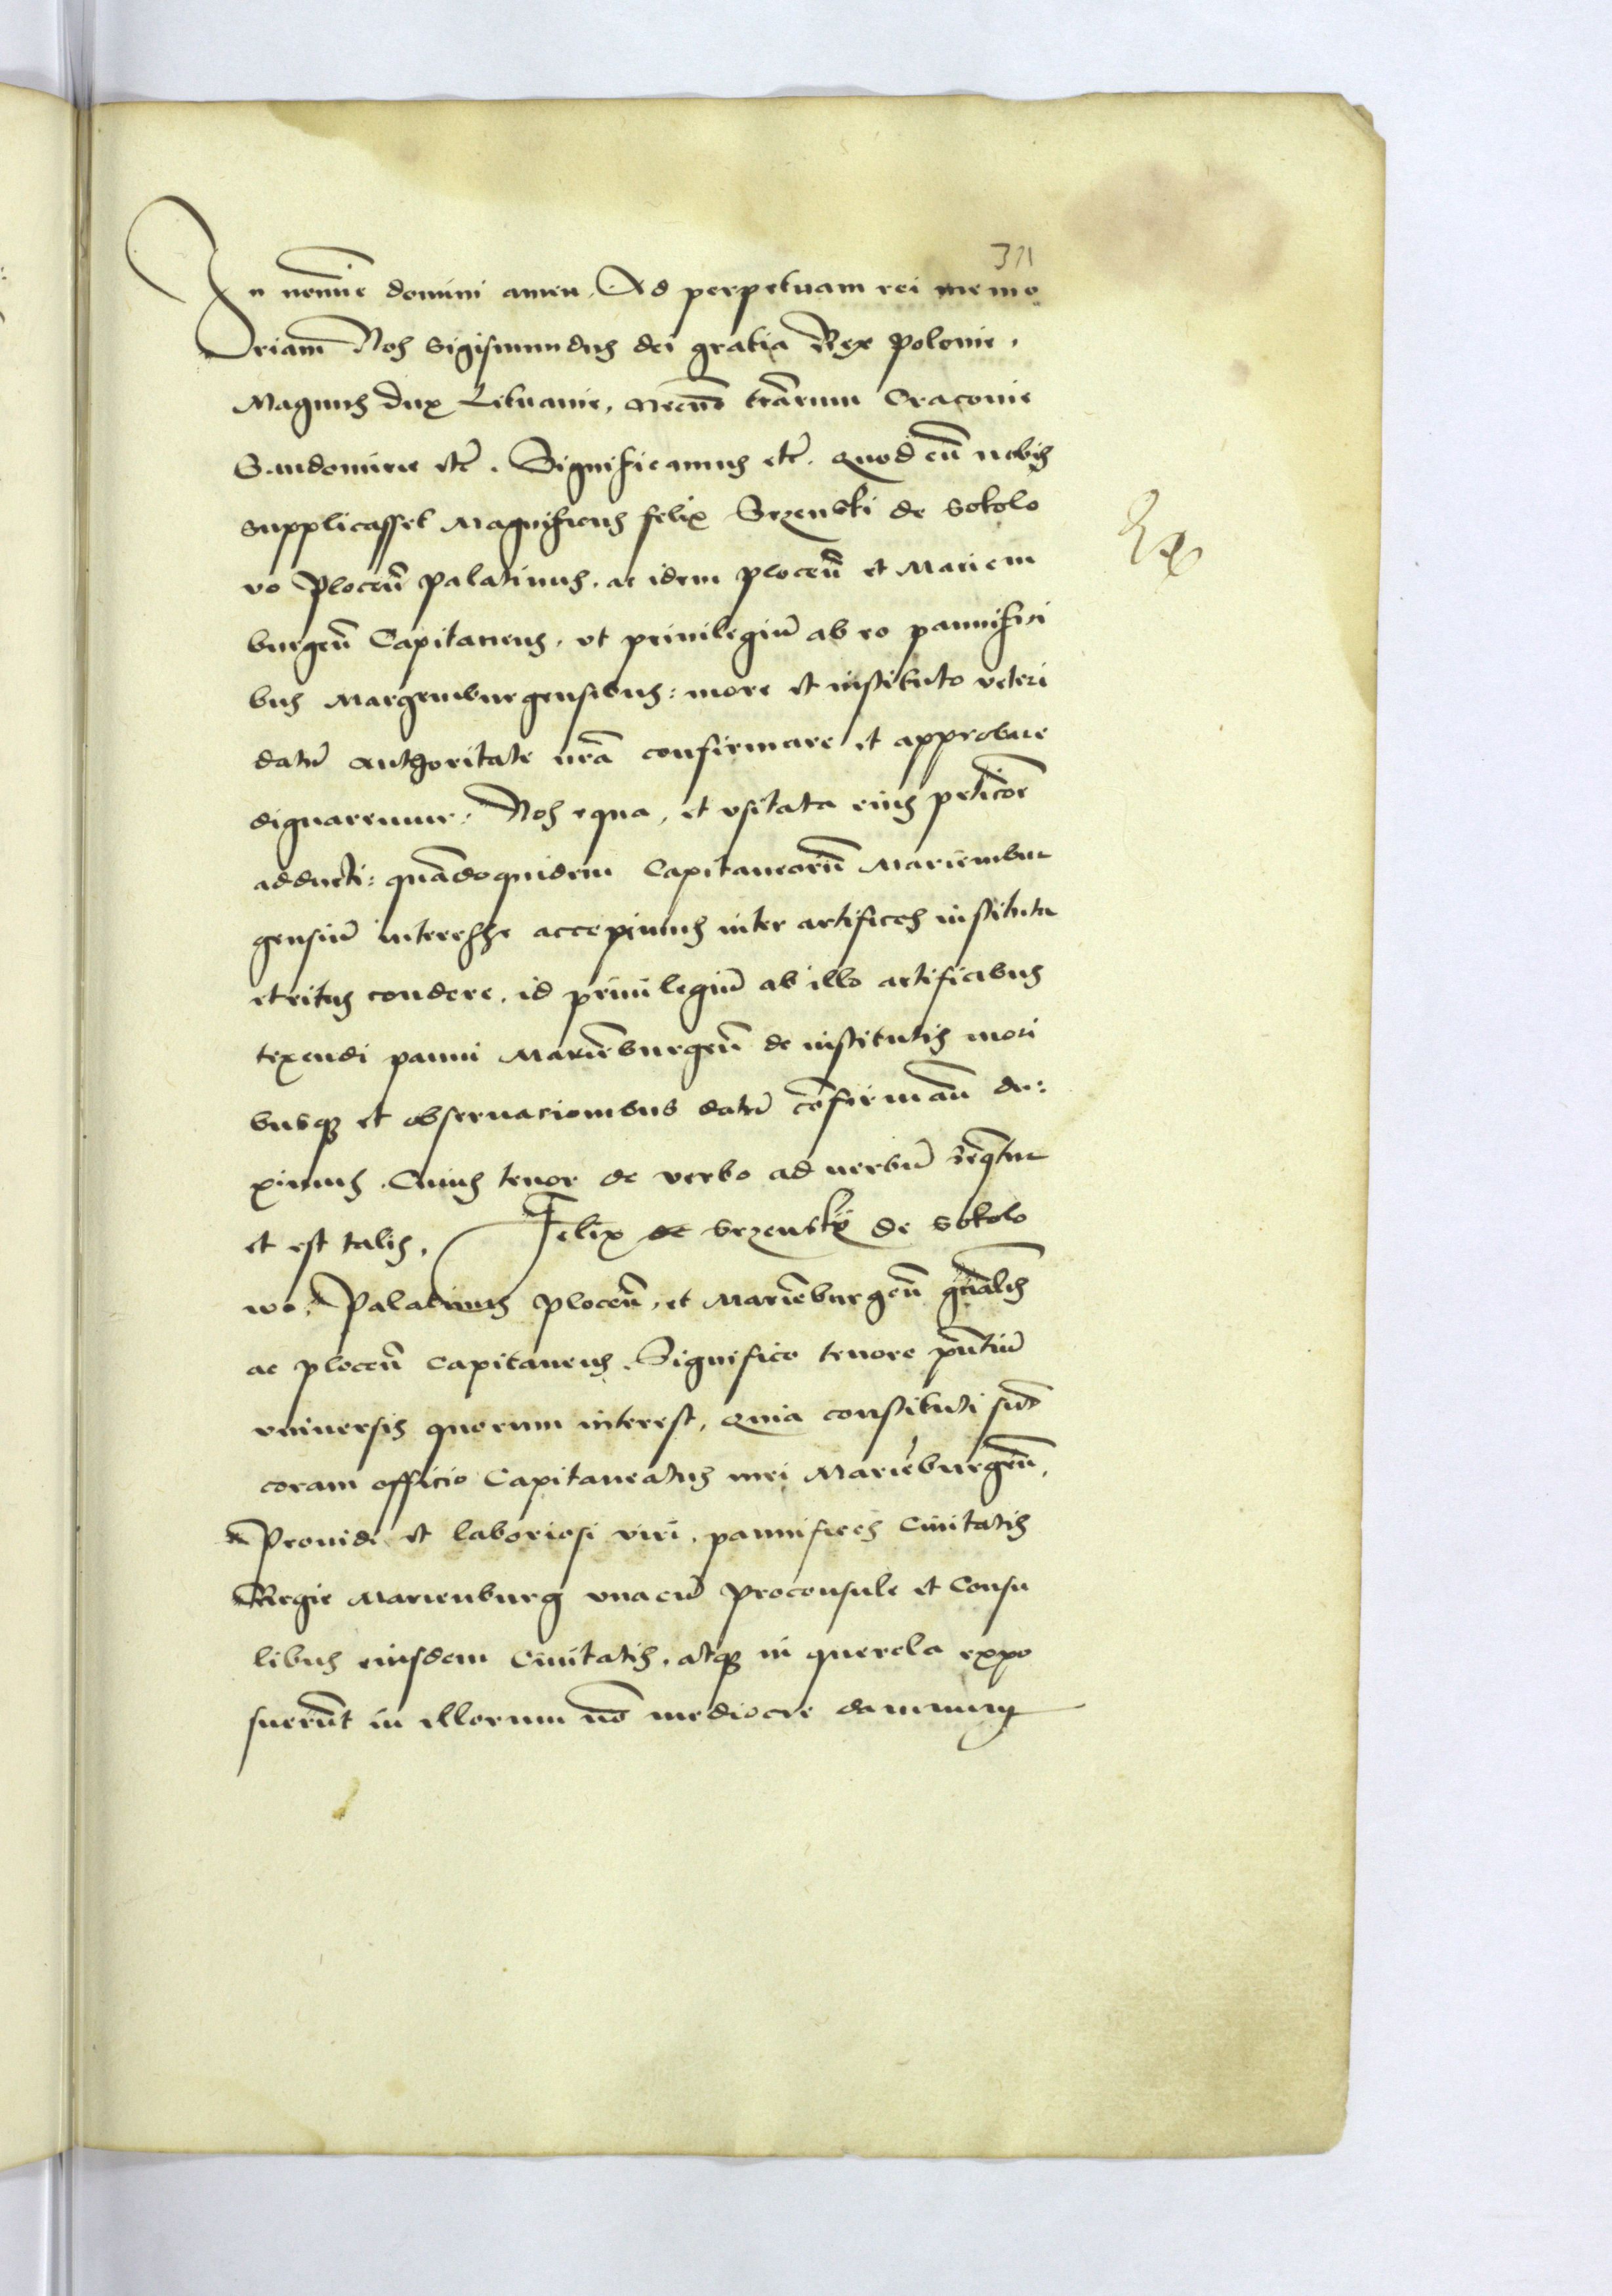 311
In nomīe domini amen. Ad perpetuam rei memo
riam Nos Sigismundus dei gratia Rex Polonie.
Magnus dux Lituanie, necnō trārum Cracovie
Sandomirie etc̄. Significamus etc̄. Quod cū nobis
supplicasset Magnificus felix Srzenski de Sokolo
vo Plocen̄ Palatinus. ac idem plocen̄ et Mariem
burgen̄ Capitaneus, vt priuilegiū ab eo pannifici
bus Margemburgensibus: more et instituto veteri
datū authoritate nrā confirmare et approbare
dignaremur: Nos equa, et vsitata eius peticōe
adducti: quādoquidem Capitaneorū Mariembur
gensiū interesse accepimus inter artifices instituta
et ritus condere, id priuilegiū ab illo artificibus
texendi panni Mariēburgen̄ de institutis mori
busq; et obseruacionibus datū cōfirman̄ du:
ximus. Cuius tenor de verbo ad uerbū seq̄tur
et est talis. Felix de Srzensky de Sokolo
wo, Palatinus Plocen̄, et Mariēburgen̄ gn̄alis
ac plocen̄ Capitaneus. Significo tenore pn̄tiū
vniuersis quorum interest, Quia constituti sūt
coram officio Capitaneatus mei Mariēburgen̄,
Prouidi et laboriosi viri, pannifices Ciuitatis
Regie Marienburg vnacū Proconsule et Consu
libus eiusdem Ciuitatis, atq; in querela expo
suerūt in illorum nō mediocre damnum